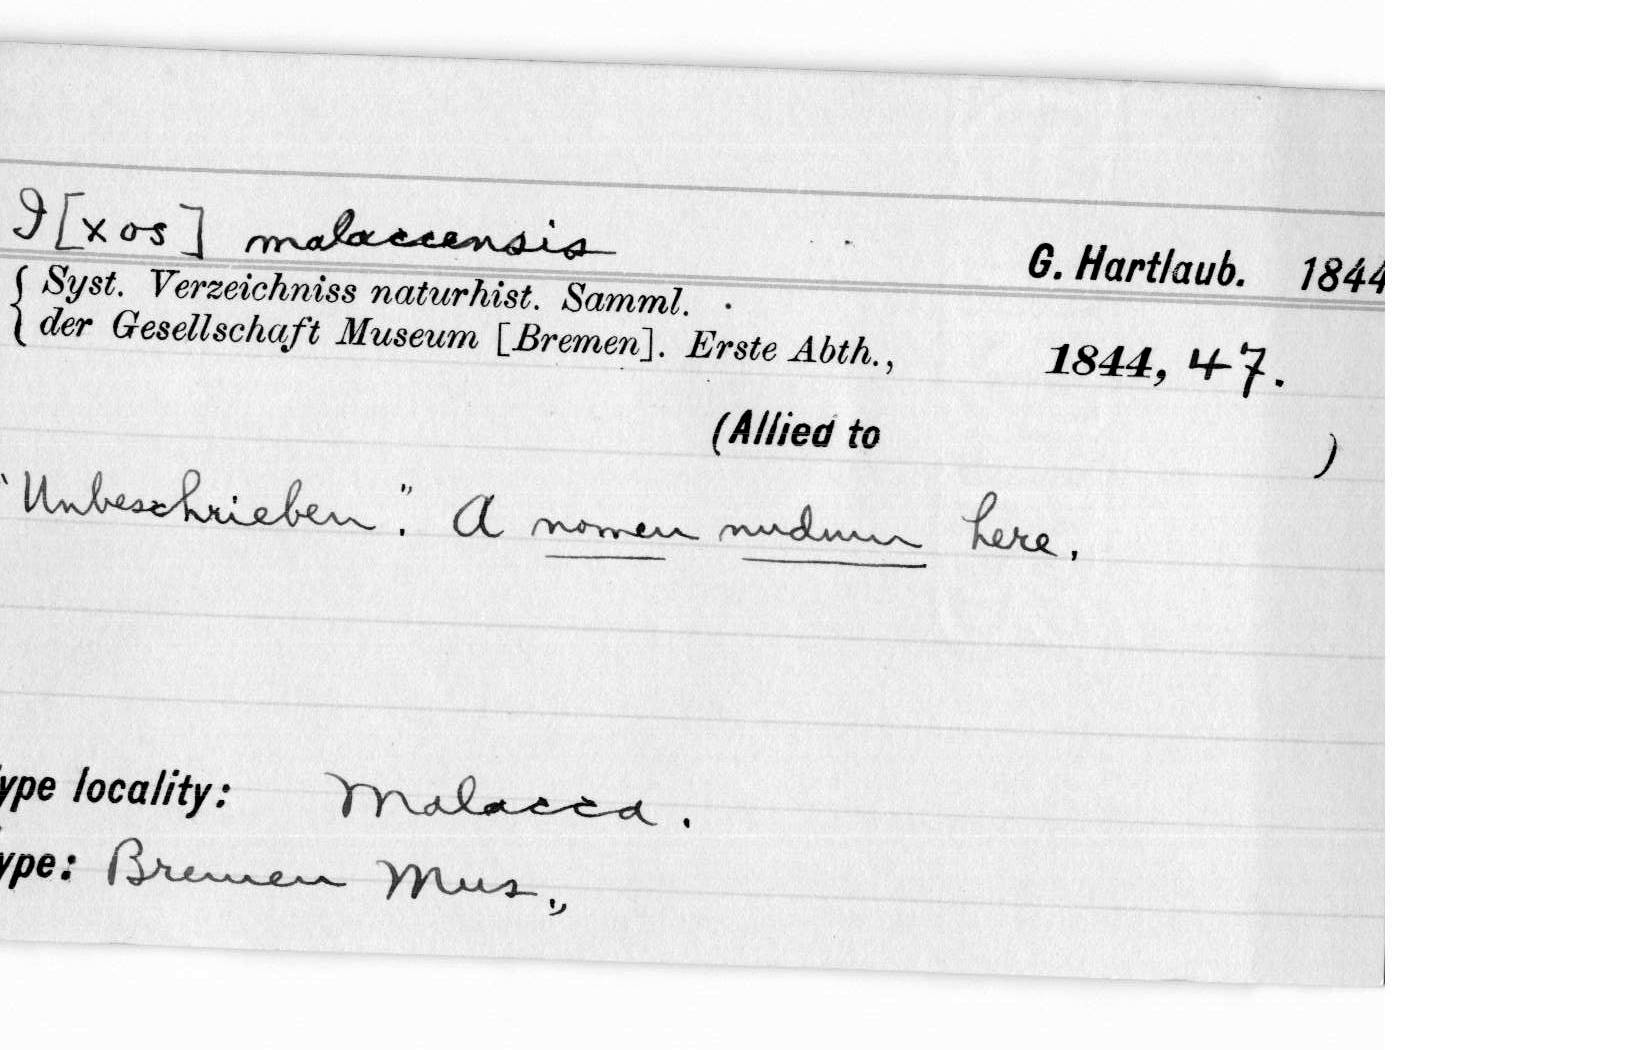 I[xos] malaccensis
G. Hartlaub. 1844
Syst. Verzeichniss naturhist. Samml.
der Gesellschaft Museum [Bremen]. Erste Abth., 1844, 47.
(Allied to )
"Unbeschrieben". A nomen nudum here.
ype locality: Malacca.
ype: Bremen Mus.,